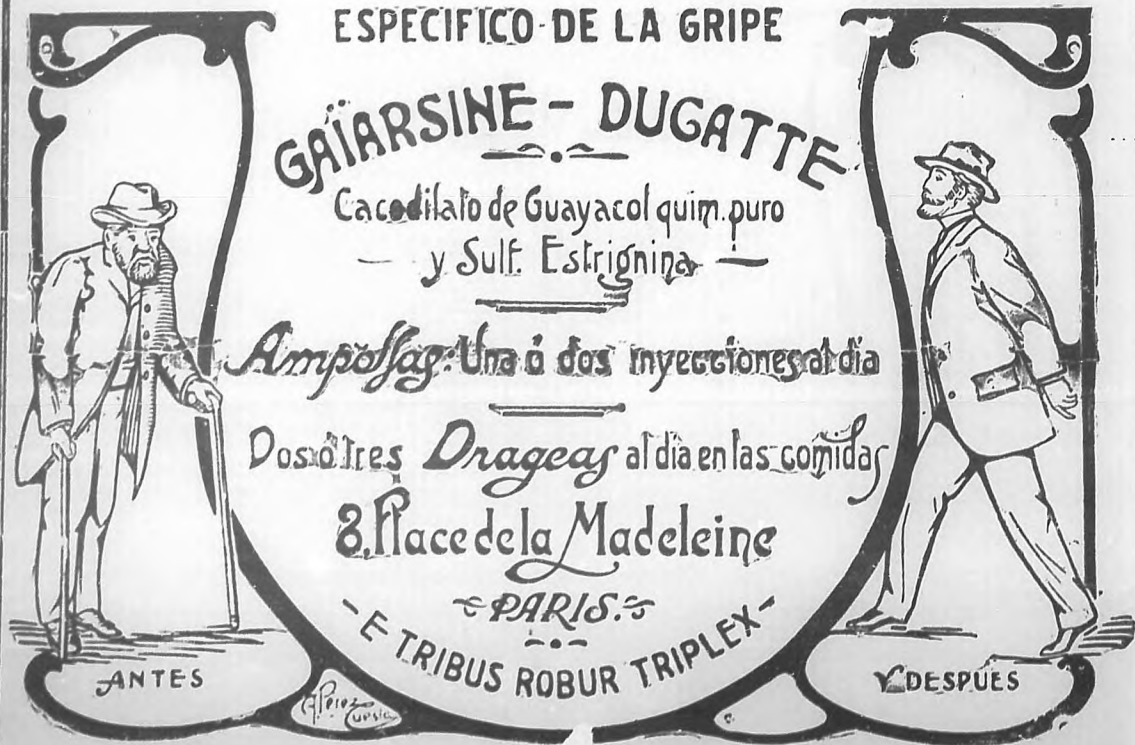 ESPECIFICO DE LA GRIPE
GAÏARSINE - DUGATTE
Cacodilato de Guayacol quim. puro
y Sulf. Estrignina
Ampollas: Una ó dos inyecciones al dia
Dos ó tres Drageas al dia en las comidas
8, Place de la Madeleine
PARIS.
- E TRIBUS ROBUR TRIPLEX -
ANTES
Y DESPUES
A. Perez
Cuesta